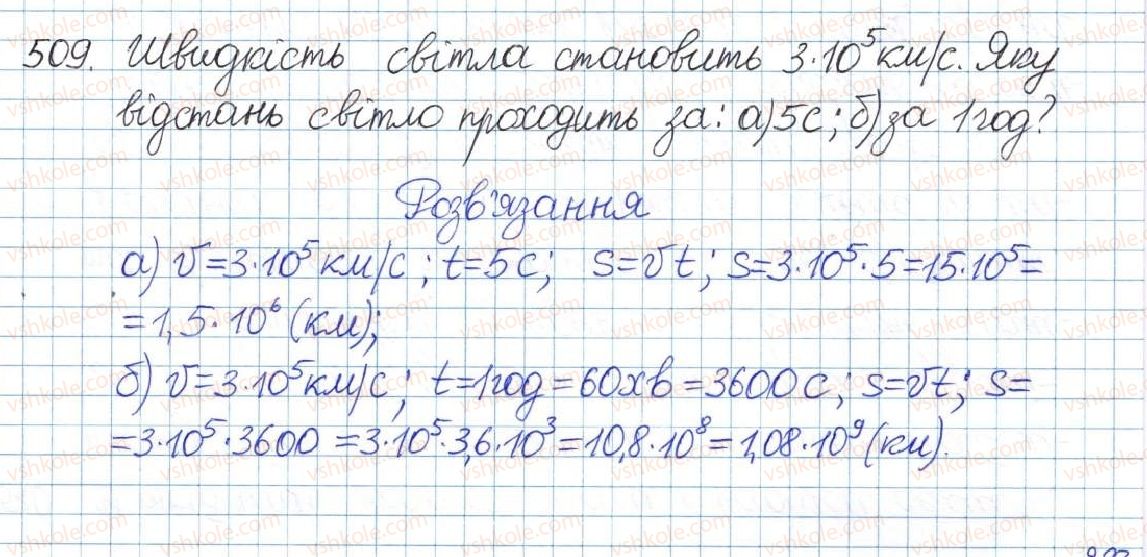 509. Швидкість світла становить 3·10⁵ км/с. Яку
відстань світло проходить за: а) 5с; б) за 1 год?
Розв'язання
а) v=3·10⁵ км/с; t=5с; s=vt; s=3·10⁵·5=15·10⁵=
=1,5·10⁶ (км);
б) v=3·10⁵ км/с; t=1год=60хв=3600с; s=vt; s=
=3·10⁵·3600=3·10⁵·3,6·10³=10,8·10⁸=1,08·10⁹ (км).